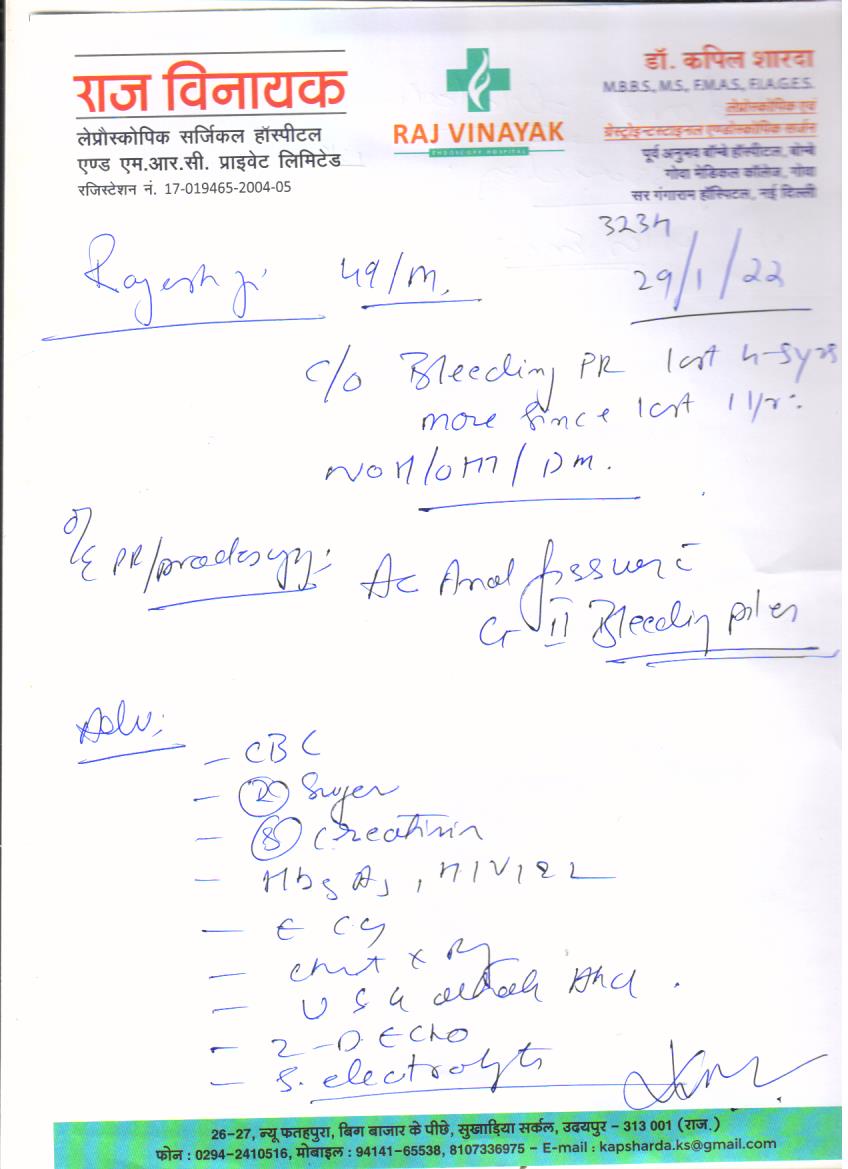 राज विनायक
लेप्रौस्कोपिक सर्जिकल हॉस्पीटल
एण्ड एम.आर.सी. प्राइवेट लिमिटेड
रजिस्टेशन नं. 17-019465-2004-05
RAJ VINAYAK
ENDOSCOPY HOSPITAL
डॉ. कपिल शारदा
M.B.B.S., M.S., F.M.A.S., F.I.A.G.E.S.
लेप्रोस्कोपिक एवं
गेस्ट्रोइन्टस्टाइनल एण्डोस्कोपिक सर्जन
पूर्व अनुभव बॉम्बे हॉस्पीटल, बोम्बे
गोवा मेडिकल कॉलेज, गोवा
सर गंगाराम हॉस्पिटल, नई दिल्ली
Rajesh ji 49/M.
29/1/22
C/O Bleeding PR last 4-5yrs
more since last 1 yr.
O/E PR/proctoscopy: Ac Anal fissure c̄
Gr II Bleeding piles
Adv:
- CBC
- (R) Sugar
- (S) Creatinin
- HbsAg, HIV,
- ECG
- Chest X Ry
- USG Abd.
- 2-D ECHO
- S. electrolyts
26-27, न्यू फतहपुरा, बिग बाजार के पीछे, सुखाड़िया सर्कल, उदयपुर - 313 001 (राज.)
फोन : 0294-2410516, मोबाइल : 94141-65538, 8107336975 - E-mail : kapsharda.ks@gmail.com